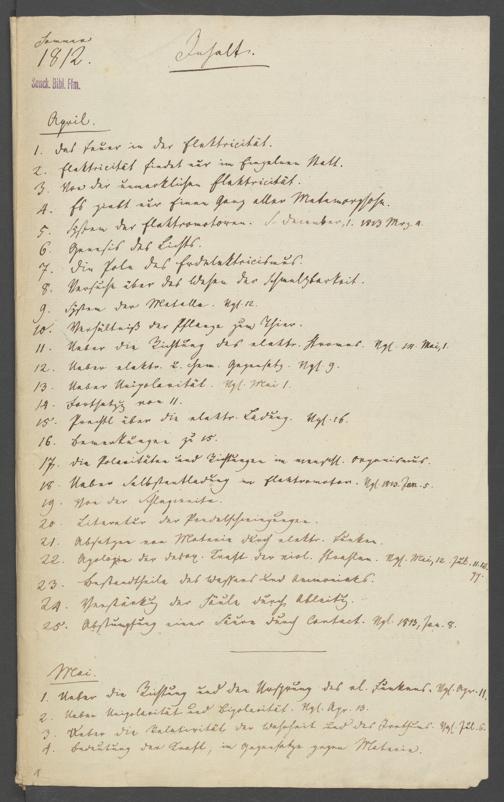 Sommer
1812.
Inhalt.
Senck. Bibl. Ffm.
April.
1. Das Feuer in der Elektricität.
2. Elektricität findet nur im Einzelnen Statt.
3. Von der unmerklichen Elektricität.
4. Es giebt nur Einen Gang aller Metamorphose.
5. System der Elektromotoren. S. December, 1. 1813 Mrz. 9.
6. Genesis des Lichts.
7. Die Pole des Erdelektricismus.
8. Versuche über das Wesen der Schmelzbarkeit.
9. System der Metalle. Vgl. 12.
10. Verhältniß der Pflanze zum Thier.
11. Ueber die Richtung des elektr. Stromes. Vgl. 14. Mai, 1.
12. Ueber elektr. u. chem. Gegensatz. Vgl. 9.
13. Ueber Unipolarität. Vgl. Mai 1.
14. Fortsetzg von 11.
15. Prechtl über die elektr. Ladung. Vgl. 16.
16. Bemerkungen zu 15.
17. Die Polaritäten und Richtungen im menschl. Organismus.
18. Ueber Selbstentladung im Elektromotor. Vgl. 1813. Jan. 5.
19. Von der
20. Literatur der Pendelschwingungen.
21. Absetzen von Materie durch elektr. Funken.
22. Apologie der desox. Kraft der viol. Strahlen. Vgl. Mai, 12. Jul. 11.
23. Bestandtheile des Wassers und Ammoniaks.
24. Verstärkg der Säule durch Ableitg.
25. Abstumpfung einer Säure durch Contact. Vgl. 1813, Jan. 8.
Mai.
1. Ueber die Richtung und den Ursprung des el. Funkens. Vgl. Apr. 11.
2. Ueber Unipolarität und Bipolarität. Vgl. Apr. 13.
3. Ueber die Relativität der Wahrheit und des Irrthums. Vgl. Jul. 6.
4. Bedeutung der Kraft, im Gegensatze gegen Materie.
1